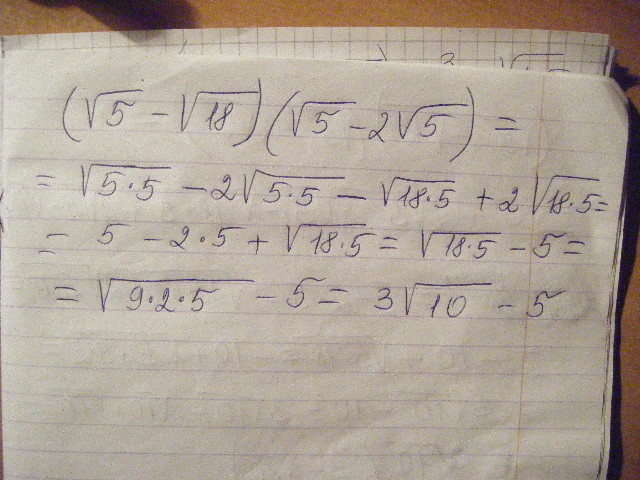 (√5 − √18)(√5 − 2√5) =
= √5·5 − 2√5·5 − √18·5 + 2√18·5 =
= 5 − 2·5 + √18·5 = √18·5 − 5 =
= √9·2·5 − 5 = 3√10 − 5